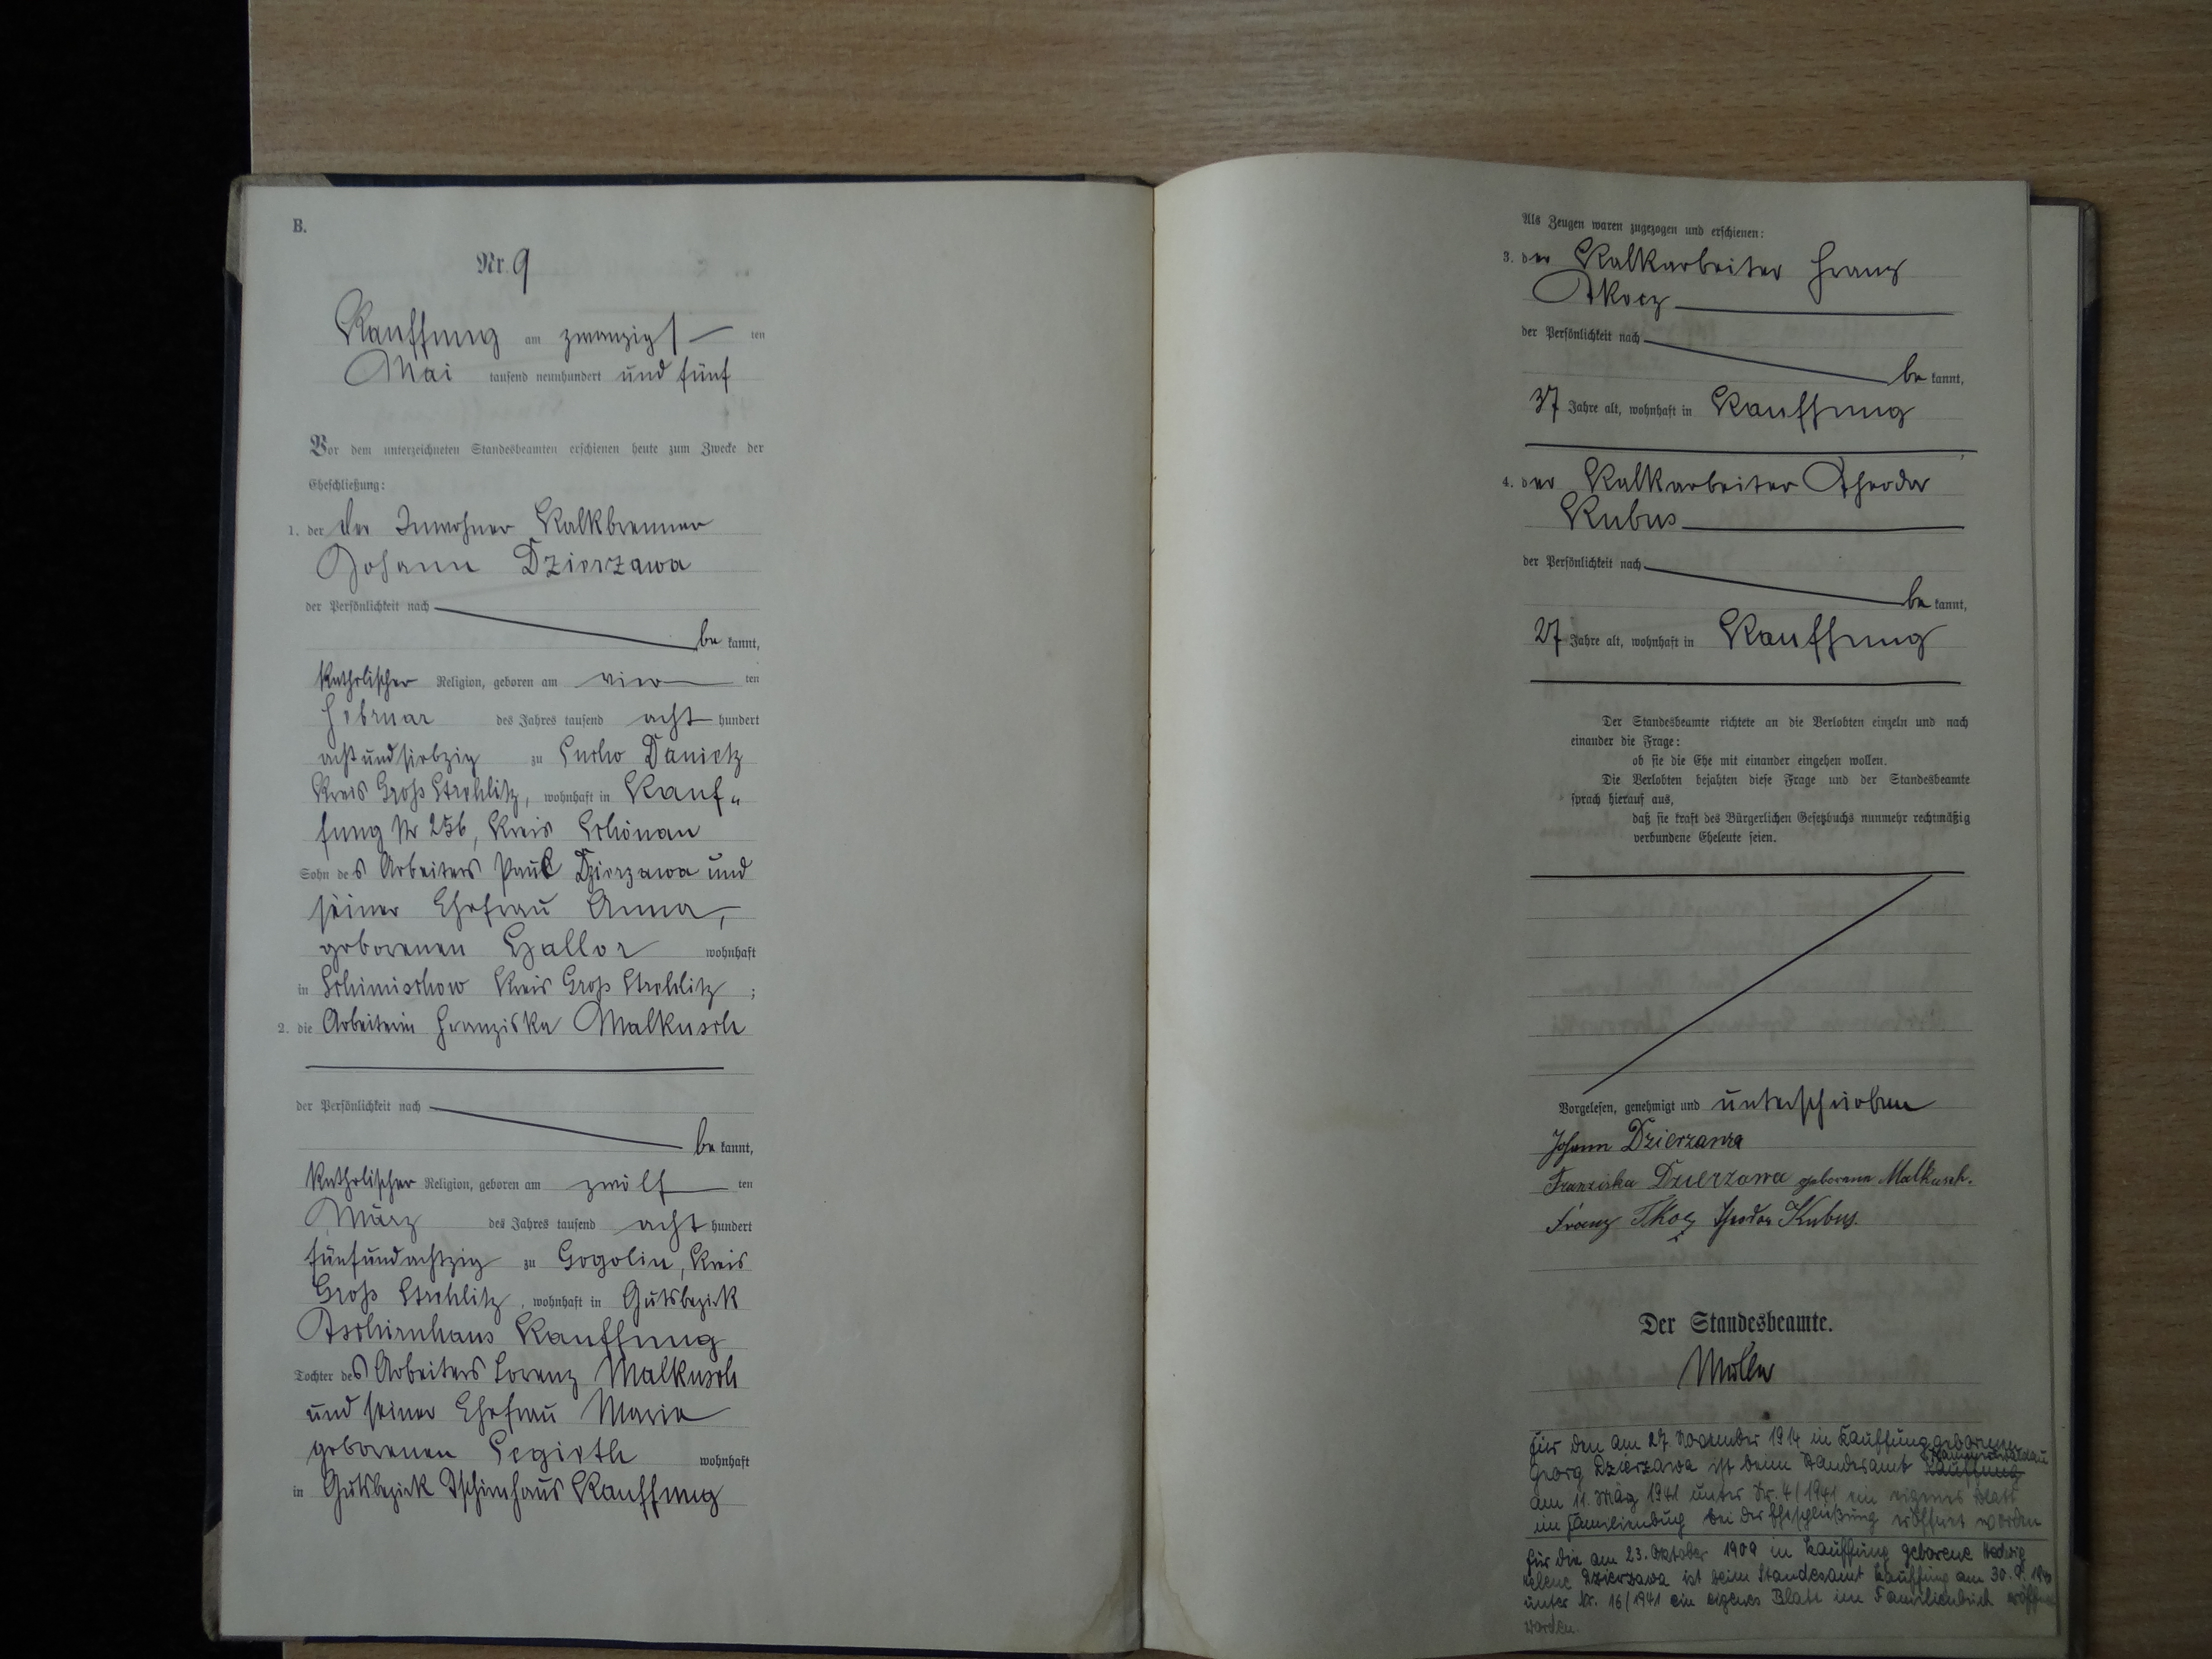 B.
Nr. 9
Kauffung am zwanzigs ten
Mai tausend neunhundert und fünf
Vor dem unterzeichneten Standesbeamten erschienen heute zum Zwecke der
Eheschließung:
1. der der Inwohner Kalkbrenner
Johann Dzierzawa
der Persönlichkeit nach
be kannt,
katholischer Religion, geboren am vier ten
Februar des Jahres tausend acht hundert
achtundsiebzig zu Sucho Danietz
Kreis Groß Strehlitz, wohnhaft in Kauf„
fung Nr 256, Kreis Schönau
Sohn des Arbeiters Paul Dzierzawa und
seiner Ehefrau Anna,
geborenen wohnhaft
in Schimischow Kreis Groß Strehlitz ;
2. die Arbeiterin Franziska Malkusch
der Persönlichkeit nach
be kannt,
katholischer Religion, geboren am zwölf ten
März des Jahres tausend acht hundert
fünfundachtzig zu Gogolin, Kreis
Groß Strehlitz, wohnhaft in Gutsbezirk
Tschirnhaus Kauffung
Tochter des Arbeiters Lorenz Malkusch
und seiner Ehefrau Maria
geborenen wohnhaft
in Gutsbezirk Tschirnhaus Kauffung
Als Zeugen waren zugezogen und erschienen:
3. der Kalkarbeiter Franz
Tkocz
der Persönlichkeit nach
be kannt,
37 Jahre alt, wohnhaft in Kauffung
4. der Kalkarbeiter Theodor
Kubus
der Persönlichkeit nach
be kannt,
27 Jahre alt, wohnhaft in Kauffung
Der Standesbeamte richtete an die Verlobten einzeln und nach
einander die Frage:
ob sie die Ehe mit einander eingehen wollen.
Die Verlobten bejahten diese Frage und der Standesbeamte
sprach hierauf aus,
daß sie kraft des Bürgerlichen Gesetzbuchs nunmehr rechtmäßig
verbundene Eheleute seien.
Vorgelesen, genehmigt und unterschrieben
Johann Dzierzawa
Franziska Dzierzawa geborene Malkusch.
Franz Tkocz Theodor Kubus.
Der Standesbeamte.
Für den am 27. November 1914 in Kauffung geborenen
Georg Dzierzawa ist beim Standesamt Kauffung
am 11. März 1941 unter Nr. 4/1941 ein eigenes Blatt
im Familienbuch bei der Eheschließung eröffnet worden
Für die am 23. Oktober 1909 in Kauffung geborene Hedwig
Helene Dzierzawa ist beim Standesamt Kauffung am 30.
unter Nr. 16/1941 ein eigenes Blatt im Familienbuch eröffnet
worden.